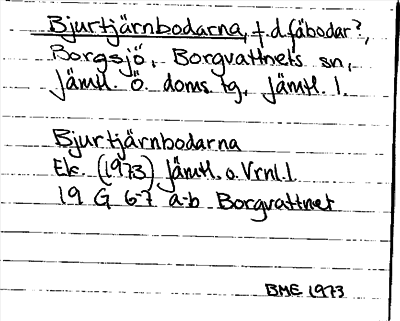 Bjurtjärnbodarna, f.d. fäbodar?,
Borgsjö, Borgvattnets sn,
Jämtl. Ö. doms. tg, Jämtl. l.
Bjurtjärnbodarna
Ek. (1973) Jämtl. o. Vrnl. l.
19 G 6-7 a-b Borgvattnet
BME 1973